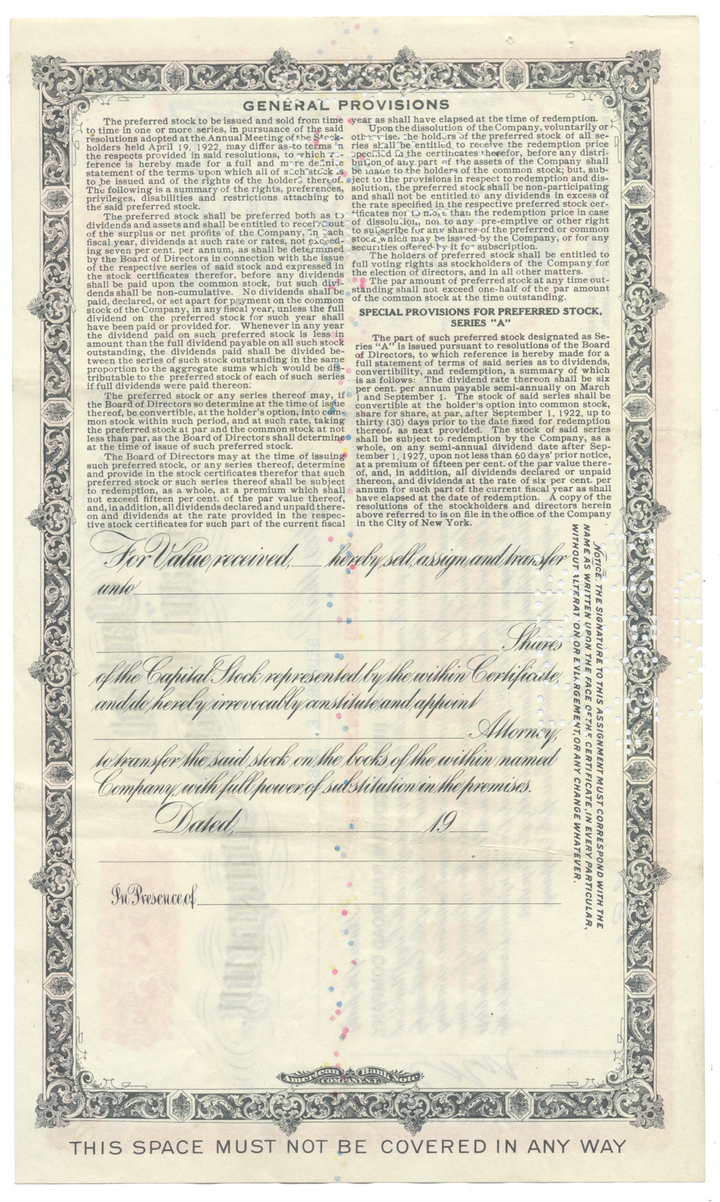 GENERAL PROVISIONS
The preferred stock to be issued and sold from time
to time in one or more series, in pursuance of the said
resolutions adopted at the Annual Meeting of the Stock-
holders held April 19, 1922, may differ as to terms in
the respects provided in said resolutions, to which ref-
erence is hereby made for a full and more definite
statement of the terms upon which all of such stock is
to be issued and of the rights of the holders thereof.
The following is a summary of the rights, preferences,
privileges, disabilities and restrictions attaching to
the said preferred stock.
The preferred stock shall be preferred both as to
dividends and assets and shall be entitled to receive out
of the surplus or net profits of the Company, in each
fiscal year, dividends at such rate or rates, not exceed-
ing seven per cent. per annum, as shall be determined
by the Board of Directors in connection with the issue
of the respective series of said stock and expressed in
the stock certificates therefor, before any dividends
shall be paid upon the common stock, but such divi-
dends shall be non-cumulative. No dividends shall be
paid, declared, or set apart for payment on the common
stock of the Company, in any fiscal year, unless the full
dividend on the preferred stock for such year shall
have been paid or provided for. Whenever in any year
the dividend paid on such preferred stock is less in
amount than the full dividend payable on all such stock
outstanding, the dividends paid shall be divided be-
tween the series of such stock outstanding in the same
proportion to the aggregate sums which would be dis-
tributable to the preferred stock of each of such series
if full dividends were paid thereon.
The preferred stock or any series thereof may, if
the Board of Directors so determine at the time of issue
thereof, be convertible, at the holder's option, into com-
mon stock within such period, and at such rate, taking
the preferred stock at par and the common stock at not
less than par, as the Board of Directors shall determine
at the time of issue of such preferred stock.
The Board of Directors may at the time of issuing
such preferred stock, or any series thereof, determine
and provide in the stock certificates therefor that such
preferred stock or such series thereof shall be subject
to redemption, as a whole, at a premium which shall
not exceed fifteen per cent. of the par value thereof,
and, in addition, all dividends declared and unpaid there-
on and dividends at the rate provided in the respec-
tive stock certificates for such part of the current fiscal
year as shall have elapsed at the time of redemption.
Upon the dissolution of the Company, voluntarily or
otherwise, the holders of the preferred stock of all se-
ries shall be entitled to receive the redemption price
specified in the certificates therefor, before any distri-
bution of any part of the assets of the Company shall
be made to the holders of the common stock; but, sub-
ject to the provisions in respect to redemption and dis-
solution, the preferred stock shall be non-participating
and shall not be entitled to any dividends in excess of
the rate specified in the respective preferred stock cer-
tificates nor to more than the redemption price in case
of dissolution, nor to any pre-emptive or other right
to subscribe for any shares of the preferred or common
stock which may be issued by the Company, or for any
securities offered by it for subscription.
The holders of preferred stock shall be entitled to
full voting rights as stockholders of the Company for
the election of directors, and in all other matters.
The par amount of preferred stock at any time out-
standing shall not exceed one-half of the par amount
of the common stock at the time outstanding.
SPECIAL PROVISIONS FOR PREFERRED STOCK,
SERIES "A"
The part of such preferred stock designated as Se-
ries "A" is issued pursuant to resolutions of the Board
of Directors, to which reference is hereby made for a
full statement of terms of said series as to dividends,
convertibility, and redemption, a summary of which
is as follows: The dividend rate thereon shall be six
per cent. per annum payable semi-annually on March
1 and September 1. The stock of said series shall be
convertible at the holder's option into common stock,
share for share, at par, after September 1, 1922, up to
thirty (30) days prior to the date fixed for redemption
thereof, as next provided. The stock of said series
shall be subject to redemption by the Company, as a
whole, on any semi-annual dividend date after Sep-
tember 1, 1927, upon not less than 60 days' prior notice,
at a premium of fifteen per cent. of the par value there-
of, and, in addition, all dividends declared or unpaid
thereon, and dividends at the rate of six per cent. per
annum for such part of the current fiscal year as shall
have elapsed at the date of redemption. A copy of the
resolutions of the stockholders and directors herein
above referred to is on file in the office of the Company
in the City of New York.
For Value received, hereby sell, assign and transfer
unto
Shares
of the Capital Stock represented by the within Certificate,
and do hereby irrevocably constitute and appoint
Attorney,
to transfer the said stock on the books of the within named
Company, with full power of substitution in the premises.
Dated 19
In Presence of
NOTICE: THE SIGNATURE TO THIS ASSIGNMENT MUST CORRESPOND WITH THE
NAME AS WRITTEN UPON THE FACE OF THE CERTIFICATE, IN EVERY PARTICULAR,
WITHOUT ALTERATION OR ENLARGEMENT, OR ANY CHANGE WHATEVER.
American Bank Note
COMPANY, N.Y.
THIS SPACE MUST NOT BE COVERED IN ANY WAY